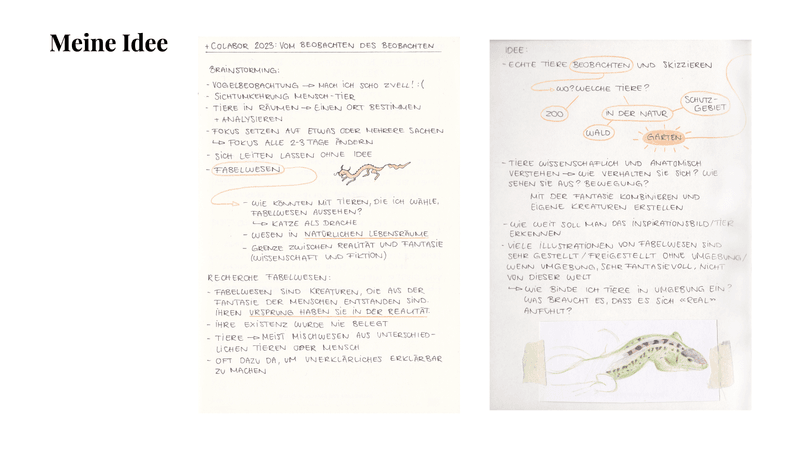 Meine Idee
+ COLABOR 2023: VOM BEOBACHTEN DES BEOBACHTEN
BRAINSTORMING:
- VOGELBEOBACHTUNG → MACH ICH SCHO ZVELL! :(
- SICHTUMKEHRUNG MENSCH-TIER
- TIERE IN RÄUMEN → EINEN ORT BESTIMMEN
+ ANALYSIEREN
- FOKUS SETZEN AUF ETWAS ODER MEHRERE SACHEN
↳ FOKUS ALLE 2-3 TAGE ÄNDERN
- SICH LEITEN LASSEN OHNE IDEE
- FABELWESEN
- WIE KÖNNTEN MIT TIEREN, DIE ICH WÄHLE,
FABELWESEN AUSSEHEN?
↳ KATZE ALS DRACHE
- WESEN IN NATÜRLICHEN LEBENSRÄUME
- GRENZE ZWISCHEN REALITÄT UND FANTASIE
(WISSENSCHAFT UND FIKTION)
RECHERCHE FABELWESEN:
- FABELWESEN SIND KREATUREN, DIE AUS DER
FANTASIE DER MENSCHEN ENTSTANDEN SIND.
IHREN URSPRUNG HABEN SIE IN DER REALITÄT.
- IHRE EXISTENZ WURDE NIE BELEGT
- TIERE → MEIST MISCHWESEN AUS UNTERSCHIED-
LICHEN TIEREN ODER MENSCH
- OFT DAZU DA, UM UNERKLÄRLICHES ERKLÄRBAR
ZU MACHEN
IDEE:
- ECHTE TIERE BEOBACHTEN UND SKIZZIEREN
WO? WELCHE TIERE?
ZOO
IN DER NATUR
SCHUTZ-
GEBIET
WALD
GARTEN
- TIERE WISSENSCHAFLICH UND ANATOMISCH
VERSTEHEN → WIE VERHALTEN SIE SICH? WIE
SEHEN SIE AUS? BEWEGUNG?
MIT DER FANTASIE KOMBINIEREN UND
EIGENE KREATUREN ERSTELLEN
- WIE WEIT SOLL MAN DAS INSPIRATIONSBILD/TIER
ERKENNEN
- VIELE ILLUSTRATIONEN VON FABELWESEN SIND
SEHR GESTELLT / FREIGESTELLT OHNE UMGEBUNG/
WENN UMGEBUNG, SEHR FANTASIEVOLL, NICHT
VON DIESER WELT
↳ WIE BINDE ICH TIERE IN UMGEBUNG EIN?
WAS BRAUCHT ES, DASS ES SICH «REAL»
ANFÜHLT?